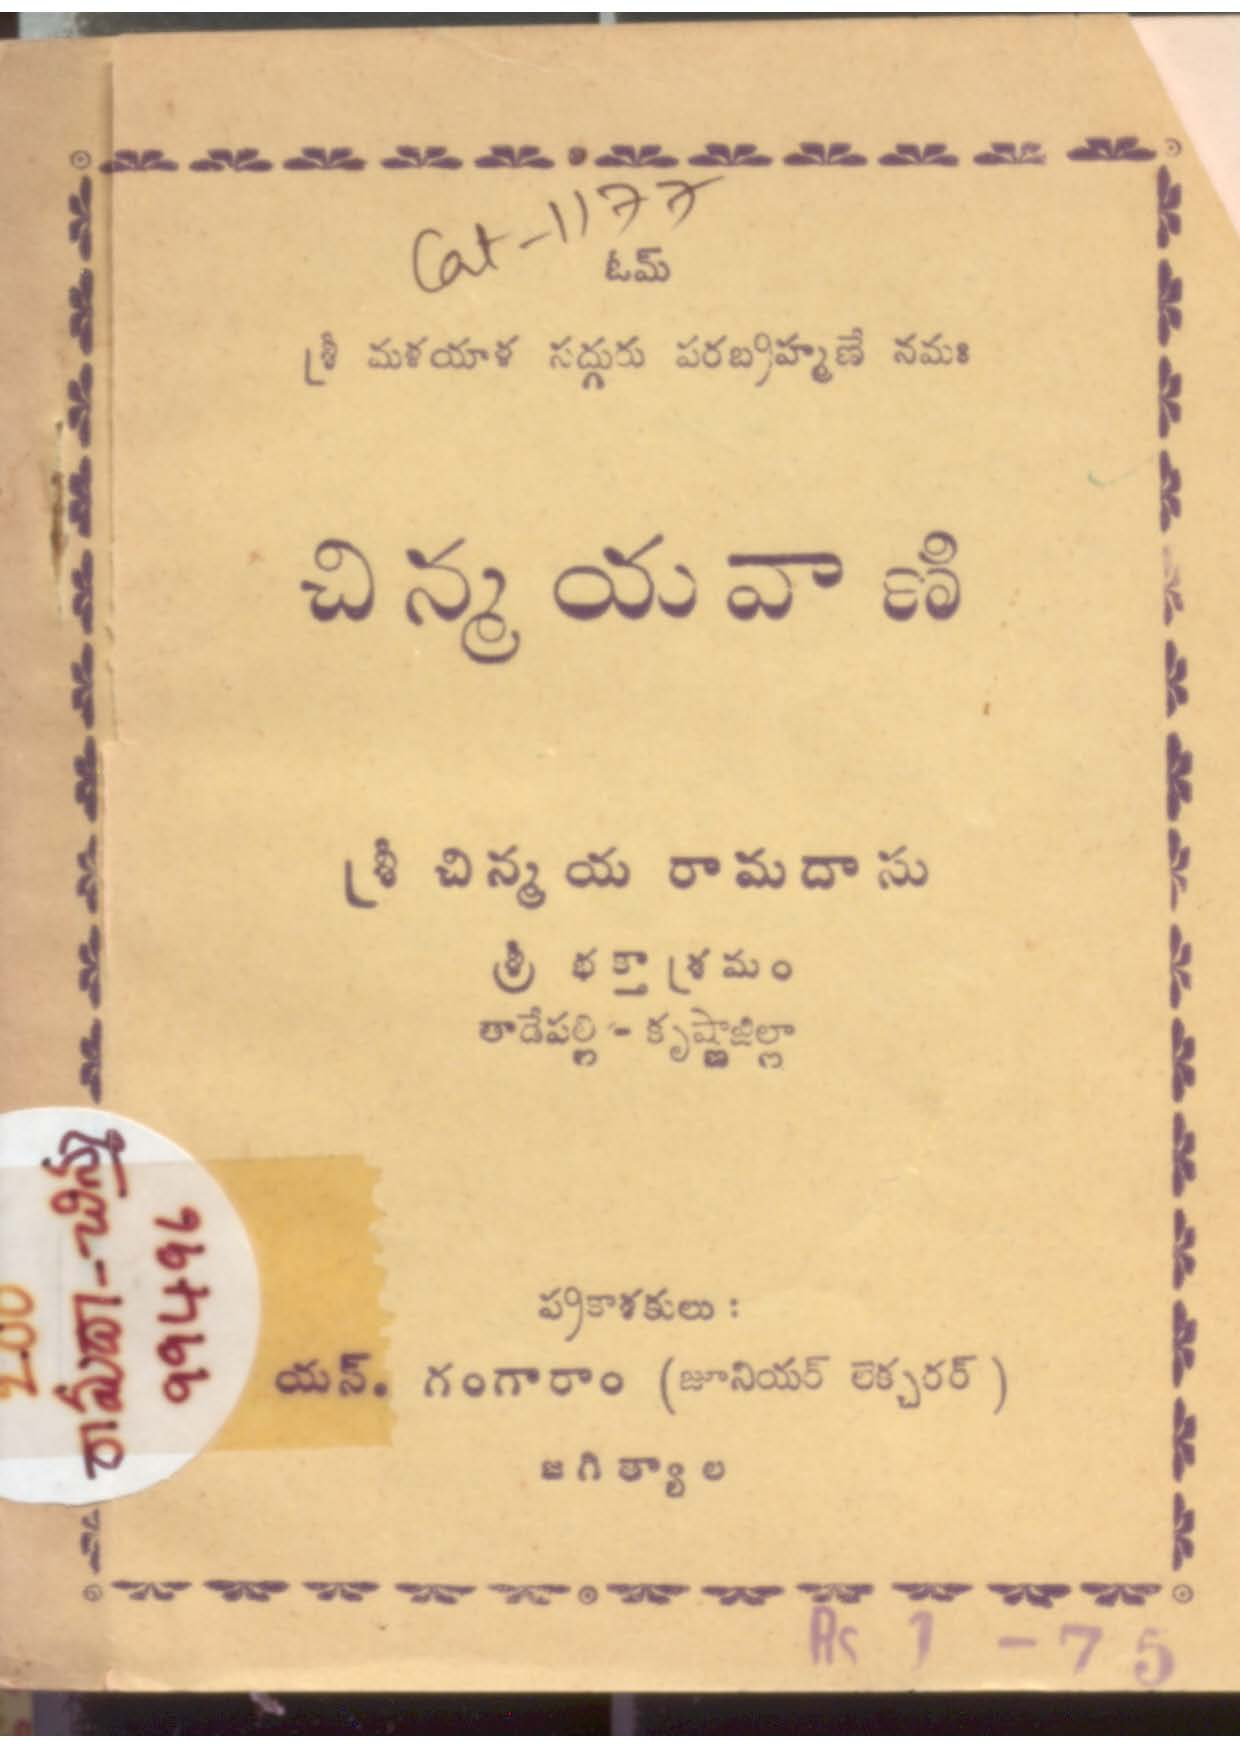 Cat-1177
ఓమ్
శ్రీ మళయాళ సద్గురు పరబ్రహ్మణే నమః
చిన్మయవాణి
శ్రీ చిన్మయ రామదాసు
శ్రీ భక్తాశ్రమం
తాడేపల్లి - కృష్ణాజిల్లా
ప్రకాశకులు :
యస్. గంగారాం (జూనియర్ లెక్చరర్)
జగిత్యాల
Rs 1 - 75
200